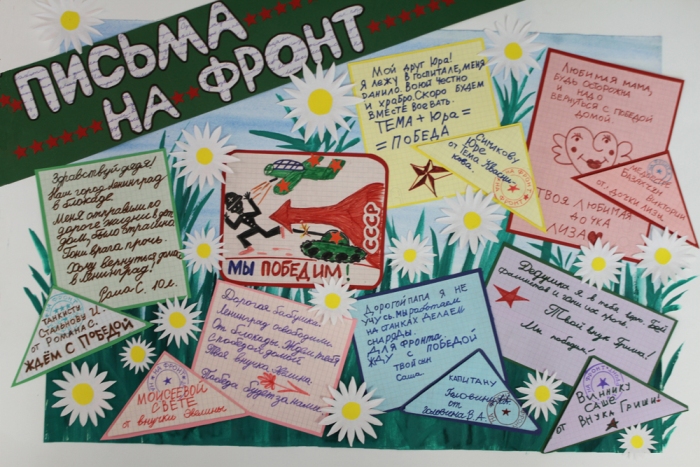 ПИСЬМА
НА ФРОНТ
Здравствуй дядя!
Наш город Ленинград
в блокаде.
Меня отправили по
дороге жизни в дет.
дом, было страшно.
Гони врага прочь.
Хочу вернутся домой
в Ленинград!
Рома С. 10 л.
ТАНКИСТУ
от Романа С.
ЖДЁМ С ПОБЕДОЙ
СССР
МЫ ПОБЕДИМ!
Мой друг Юра!
Я лежу в госпитале, меня
ранило. Воюй честно
и храбро. Скоро будем
вместе воевать.
ТЕМА + Юра =
= ПОБЕДА
Симакову
Юре
от Тёма
кова.
Любимая мама,
будь осторожна
надо
вернуться с победой
домой
ТВОЯ ЛЮБИМАЯ
ДОЧКА
ЛИЗА
Виктории
от дочки Лизы
Дорогая бабушка
Ленинград освободили
от блокады. Ждём тебя
с победой домой
Твоя внучка
Победа будет за нами
НА ФРОНТ
МОИСЕЕВОЙ
СВЕТЕ
от внучки
ДОРОГОЙ ПАПА Я НЕ
УЧУСЬ. МЫ РАБОТАЕМ
НА СТАНКАХ ДЕЛАЕМ
СНАРЯДЫ.
ДЛЯ ФРОНТА
ЖДУ С ПОБЕДОЙ
ТВОЙ СЫН
Саша.
КАПИТАНУ
от
Головина В.А.
Дедушка я в тебя верю. Бей
фашистов и гони их прочь.
Твой внук Гриша!
Мы победим!
ВИННИК
САШЕ
от ВНУКА ГРИШИ!